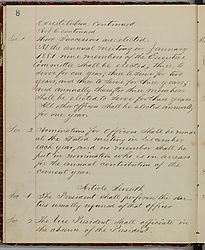 8
Constitution Continued
Art 6 continued
their successors are elected.
Sec. 1 At the annual meeting in January
1881 nine members of the Executive
Committee shall be elected, three to
serve for one year, three to serve for two
years, and three to serve for three years,
and annually thereafter three members
shall be elected to serve for three years.
All other officers shall be elected annually
for one year.
Sec 2 Nominations for Officers shall be made
at the stated meeting in December
each year, and no member shall be
put in nomination who is in arrears
for the annual contribution of the
current year.
Article Seventh
Sec 1 The President shall perform the du-
ties usually required of that officer
Sec 2 The Vice President shall officiate in
the absence of the President.